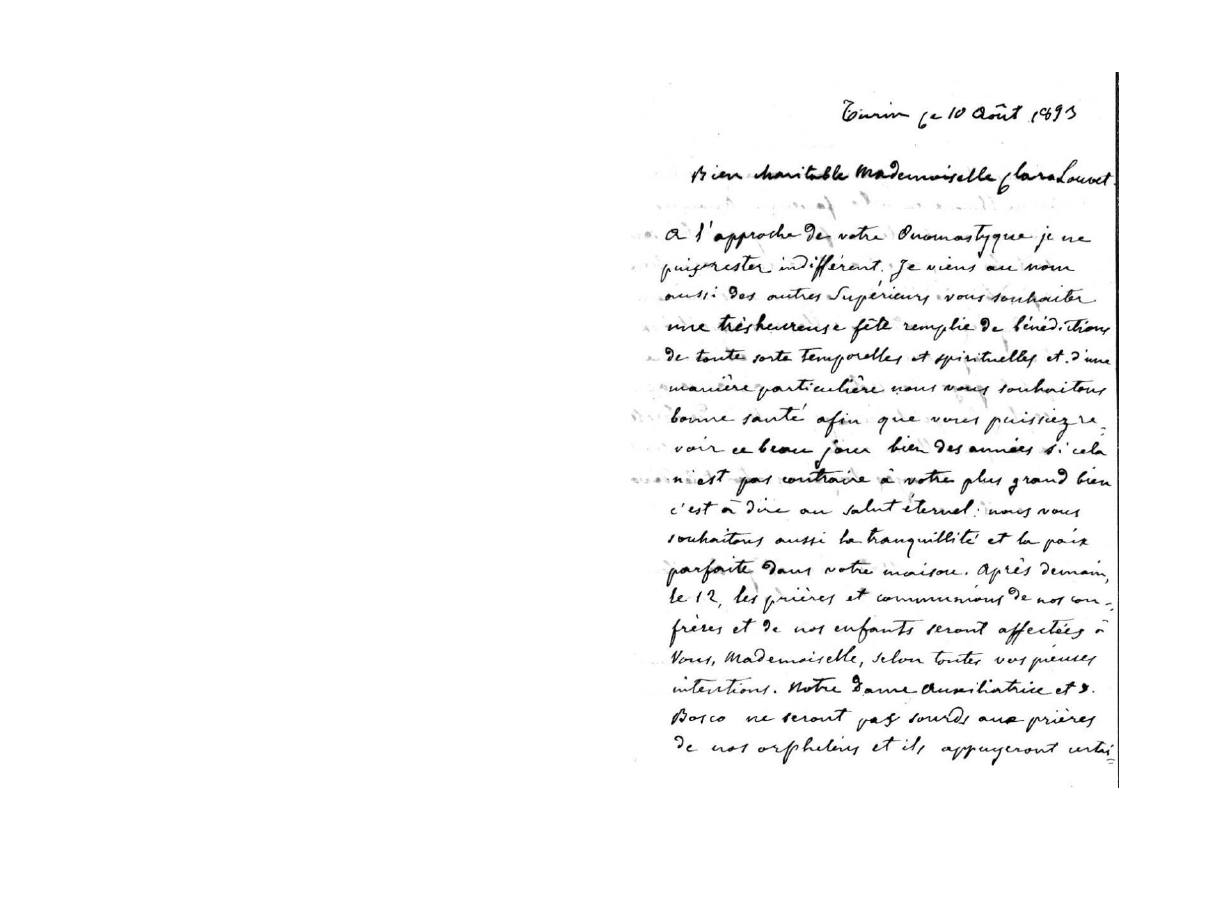 Turin le 10 Août 1893
Bien charitable Mademoiselle Clara Louvet
A l'approche de votre Onomastyque je ne
puis rester indifférent. Je viens au nom
aussi des autres Supérieurs vous souhaiter
une très heureuse fête remplie de bénédictions
de toute sorte temporelles et spirituelles et d'une
manière particulière nous vous souhaitons
bonne santé afin que vous puissiez re-
voir ce beau jour bien des années si cela
n'est pas contraire à votre plus grand bien
c'est à dire au salut éternel: nous vous
souhaitons aussi la tranquillité et la paix
parfaite dans votre maison. Après demain,
le 12, les prières et communions de nos con-
frères et de nos enfants seront affectées à
Vous, Mademoiselle, selon toutes vos pieuses
intentions. Notre Dame Auxiliatrice et D.
Bosco ne seront pas sourds aux prières
de nos orphelins et ils appuyeront certai=